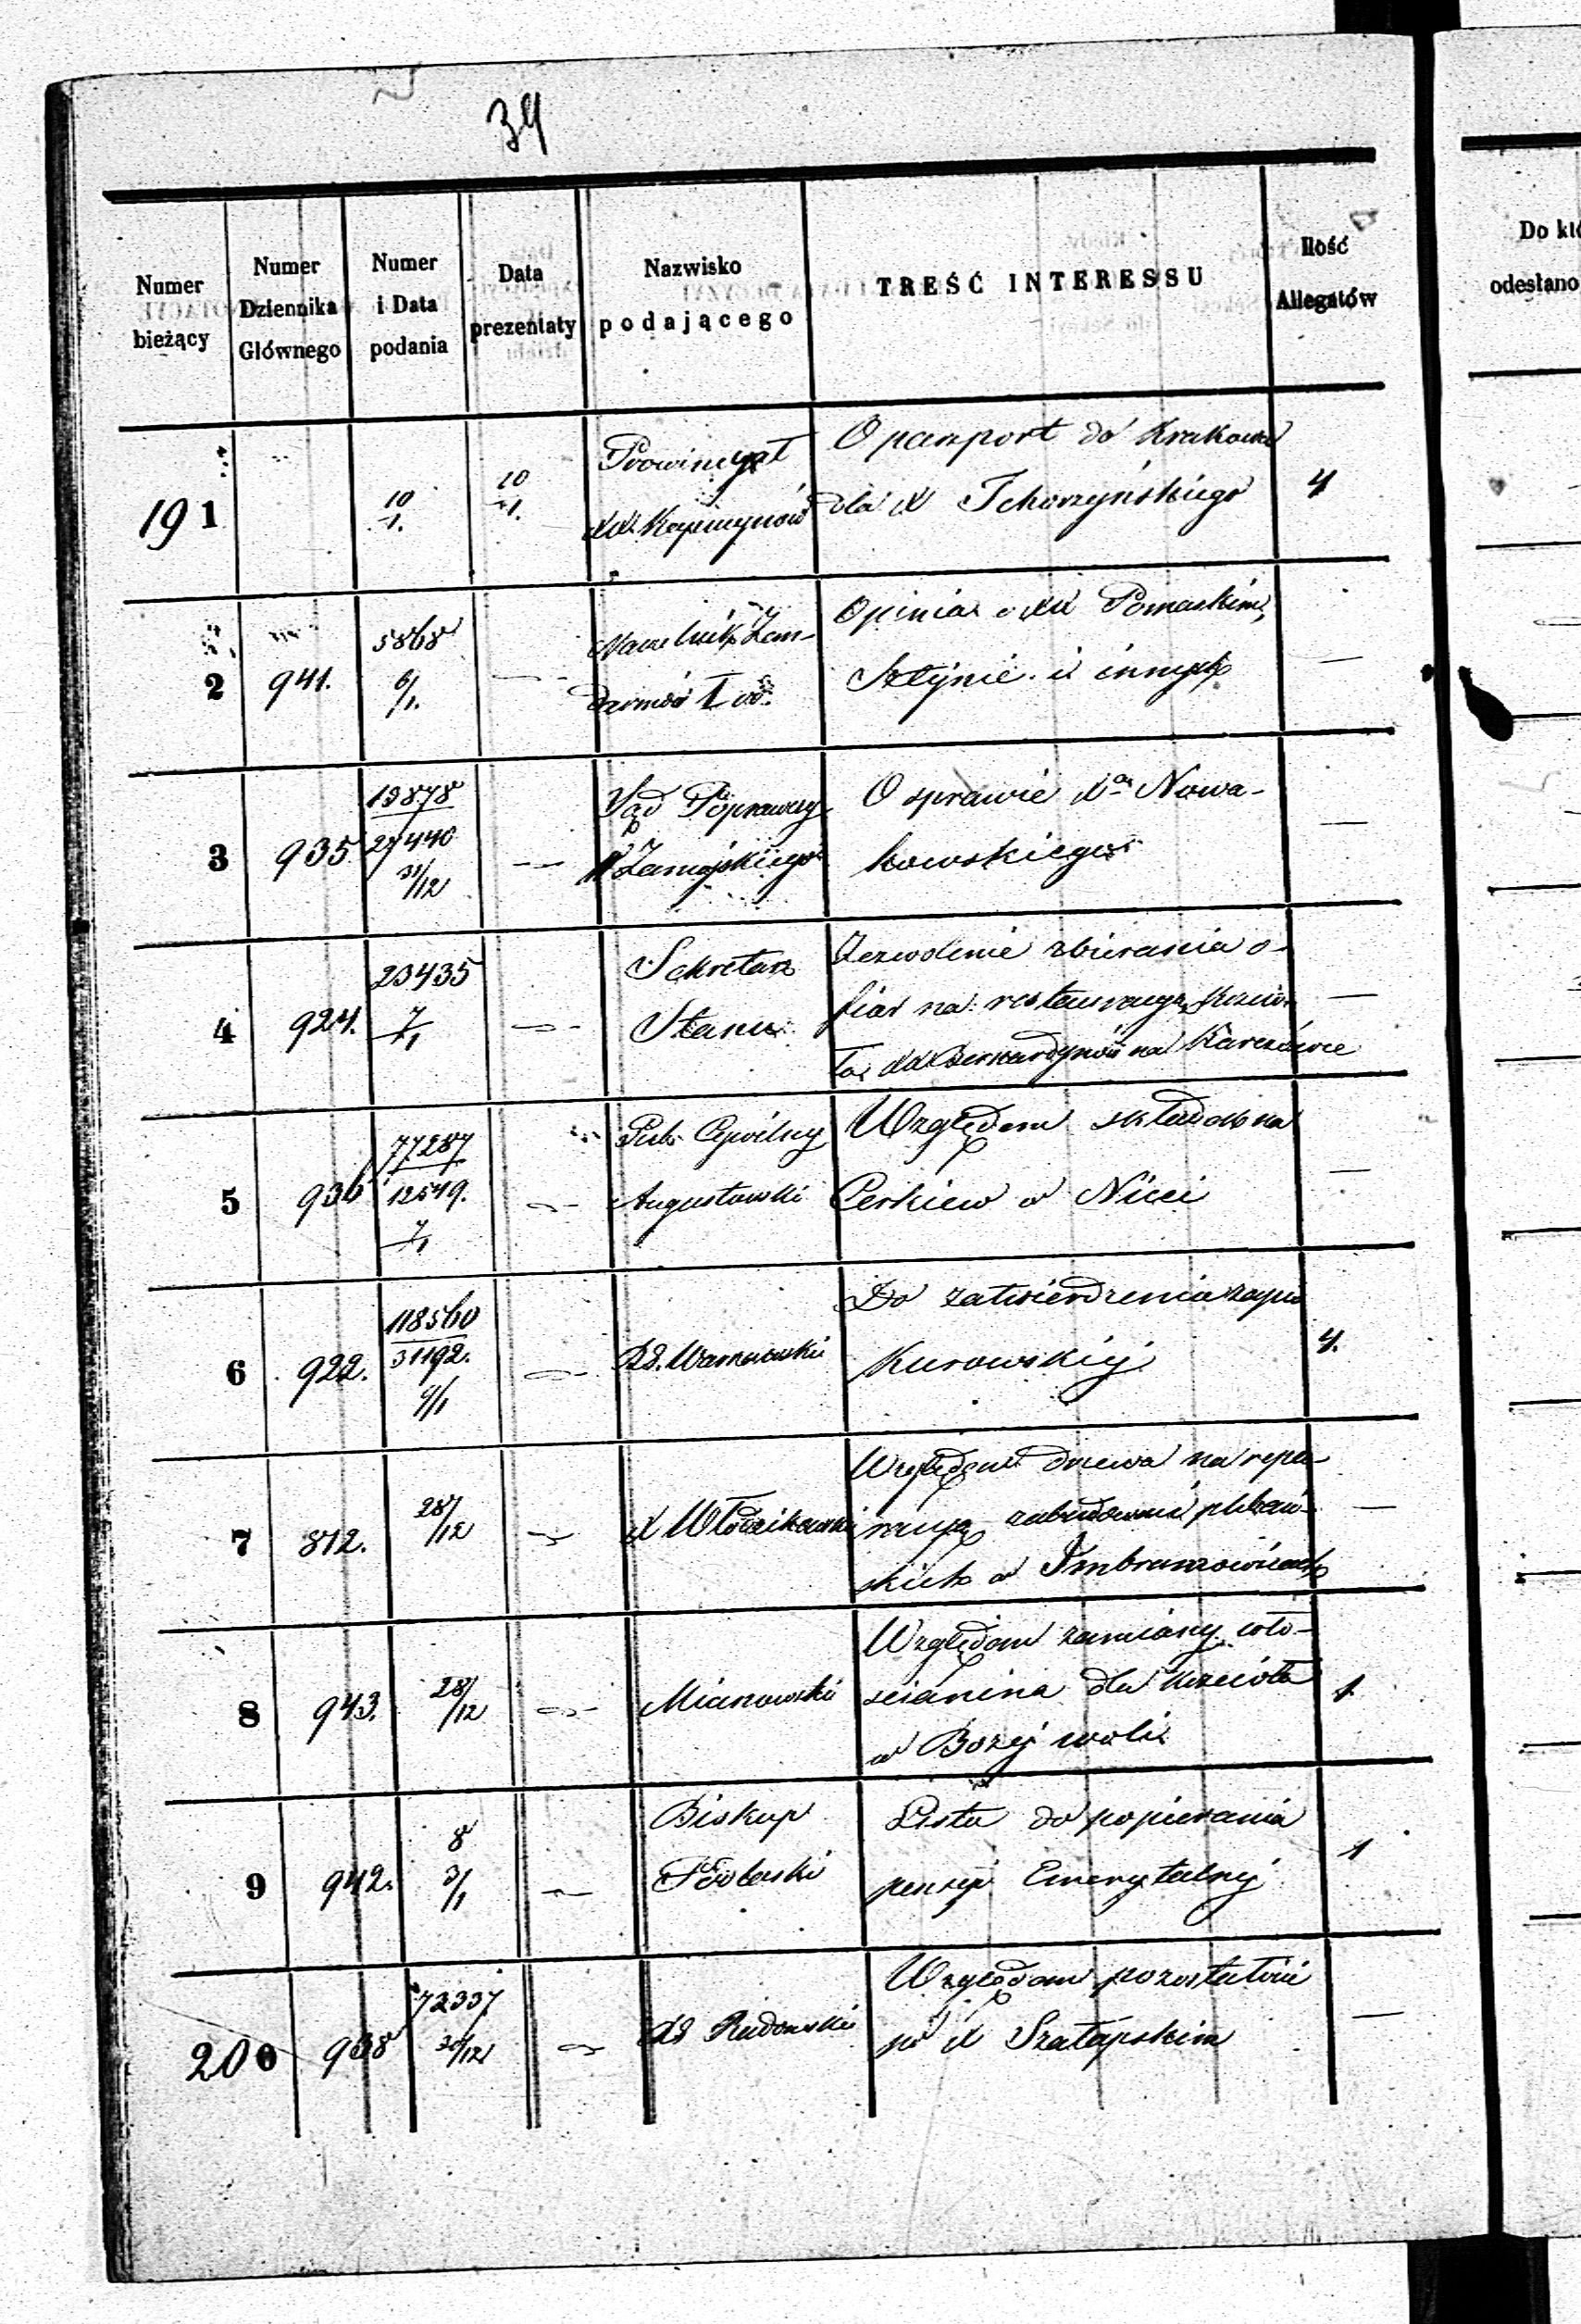 39
Numer bieżący
Numer Dziennika Głównego
Numer i Data podania
Data prezentaty
Nazwisko podającego
TREŚĆ INTERESSU
Ilość Allegatów
Do
odesłano
191
10/1.
10/1.
Prowincyał
XX Kapucynów
O paszport do Krakowa
dla X Tchorzyńskiego
4
2
941.
5868
6/1.
Naczelnik Żan-
darmów I od.
Opinia o XX Pomaskim,
Sztynie i innych
—
3
935
13878
27440
31/12
Sąd Poprawczy
Zamojskiego
O sprawie Xa Nowa-
kowskiego
—
4
924.
23435
7/1
Sekretarz
Stanu
Zezwolenie zbierania o-
fiar na restauracyą Kościo-
ła XX Bernardynów na Karczówce
—
5
936
77287
12549.
7/1
Gub. Cywilny
Augustowski
Względem składek na
Cerkiew w Nicei
—
6
922.
118560
31192.
9/1
RG. Warszawski
Do zatwierdzenia zapis
Kurowskiej
4.
7
812.
28/12
X Włodzikowski
Względem drzewa na repa-
racyą zabudowań plebań-
skich w Imbramowicach
—
8
943.
28/12
Mianowski
Względem zamiany wło-
scianina dla Kościoła
w Bożej woli
1
9
942.
8
3/1
Biskup
Lista do popierania
pensyi Emerytalnej
1
200
938
72337
30/12
RG Radomski
Względem pozostałości
po X Szałapskim
—